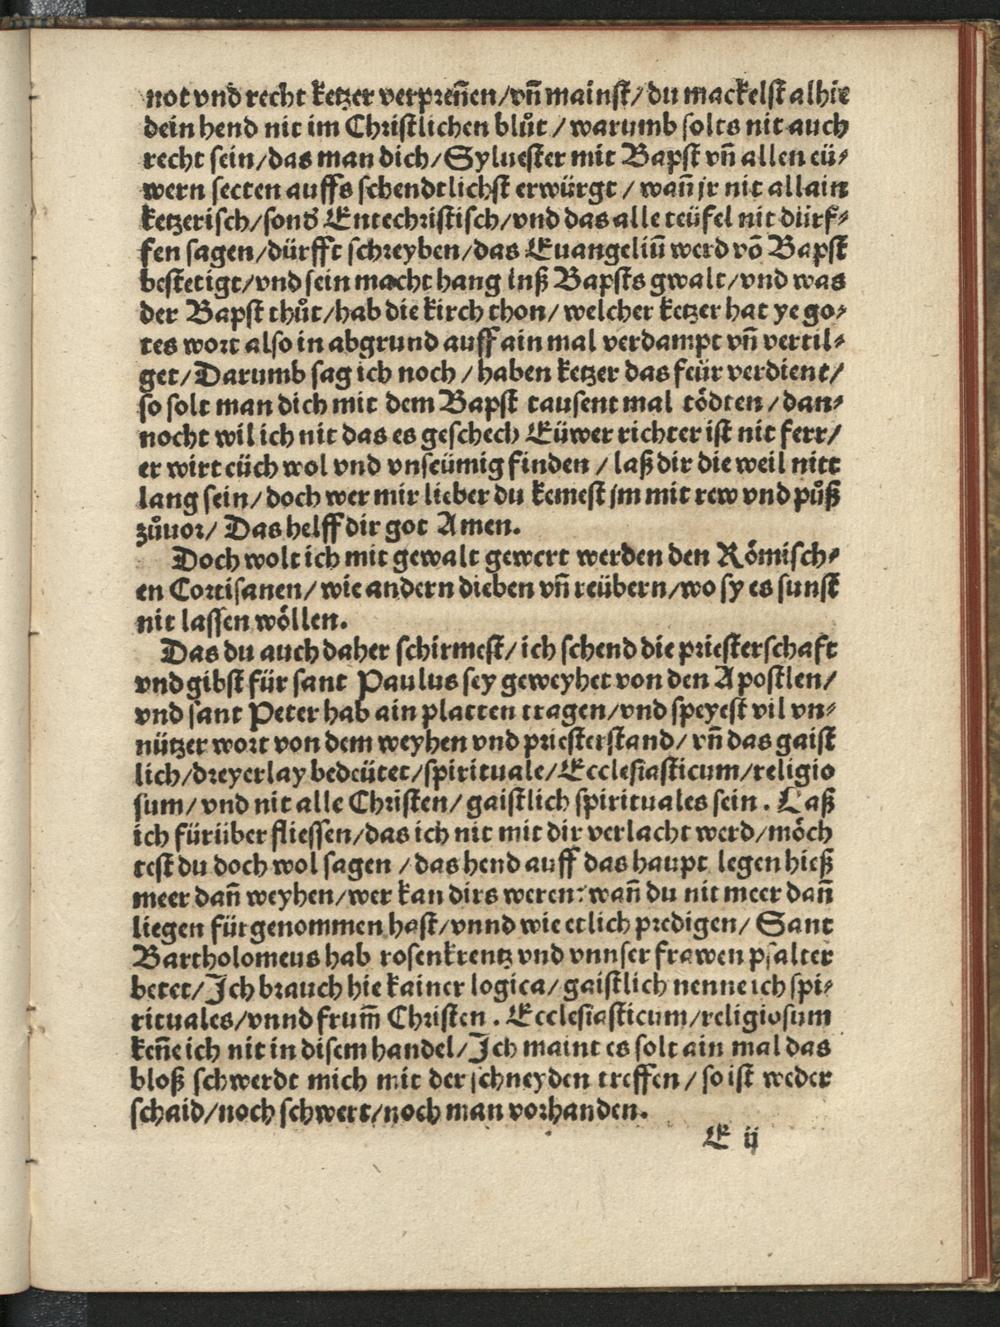 not vnd recht ketzer verpreñen/vñ mainst/du mackelst alhie
dein hend nit im Christlichen blůt/warumb solts nit auch
recht sein/das man dich/Syluester mit Bapst vñ allen eü⸗
wern secten auffs schendtlichst erwürgt/wañ jr nit allain
ketzerisch/sonđ Entechristisch/vnd das alle teüfel nit dürf⸗
fen sagen/dürfft schreyben/das Euangeliũ werd võ Bapst
bestetigt/vnd sein macht hang inß Bapsts gwalt/vnd was
der Bapst thůt/hab die kirch thon/welcher ketzer hat ye go⸗
tes wort also in abgrund auff ain mal verdampt vñ vertil⸗
get/Darumb sag ich noch/haben ketzer das feür verdient/
so solt man dich mit dem Bapst tausent mal tödten/dan⸗
nocht wil ich nit das es geschech Eüwer richter ist nit ferr/
er wirt eüch wol vnd vnseümig finden/laß dir die weil nitt
lang sein/doch wer mir lieber du kemest jm mit rew vnd půß
zůuor/Das helff dir got Amen.
Doch wolt ich mit gewalt gewert werden den Römisch⸗
en Cortisanen/wie andern dieben vñ reübern/wo sy es sunst
nit lassen wöllen.
Das du auch daher schirmest/ich schend die priesterschaft
vnd gibst für sant Paulus sey geweyhet von den Apostlen/
vnd sant Peter hab ain platten tragen/vnd speyest vil vn⸗
nützer wort von dem weyhen vnd priesterstand/vñ das gaist
lich/dreyerlay bedeütet/spirituale/Ecclesiasticum/religio
sum/vnd nit alle Christen/gaistlich spirituales sein. Laß
ich fürüber fliessen/das ich nit mit dir verlacht werd/möch
test du doch wol sagen/das hend auff das haupt legen hieß
meer dañ weyhen/wer kan dirs weren: wañ du nit meer dañ
liegen fürgenommen hast/vnnd wie etlich predigen/Sant
Bartholomeus hab rosenkrentz vnd vnnser frawen psalter
betet/Jch brauch hie kainer logica/gaistlich nenne ich spi⸗
rituales/vnnd frum̃ Christen. Ecclesiasticum/religiosum
keñe ich nit in disem handel/Jch maint es solt ain mal das
bloß schwerdt mich mit der schneyden treffen/so ist weder
schaid/noch schwert/noch man vorhanden.
E ij